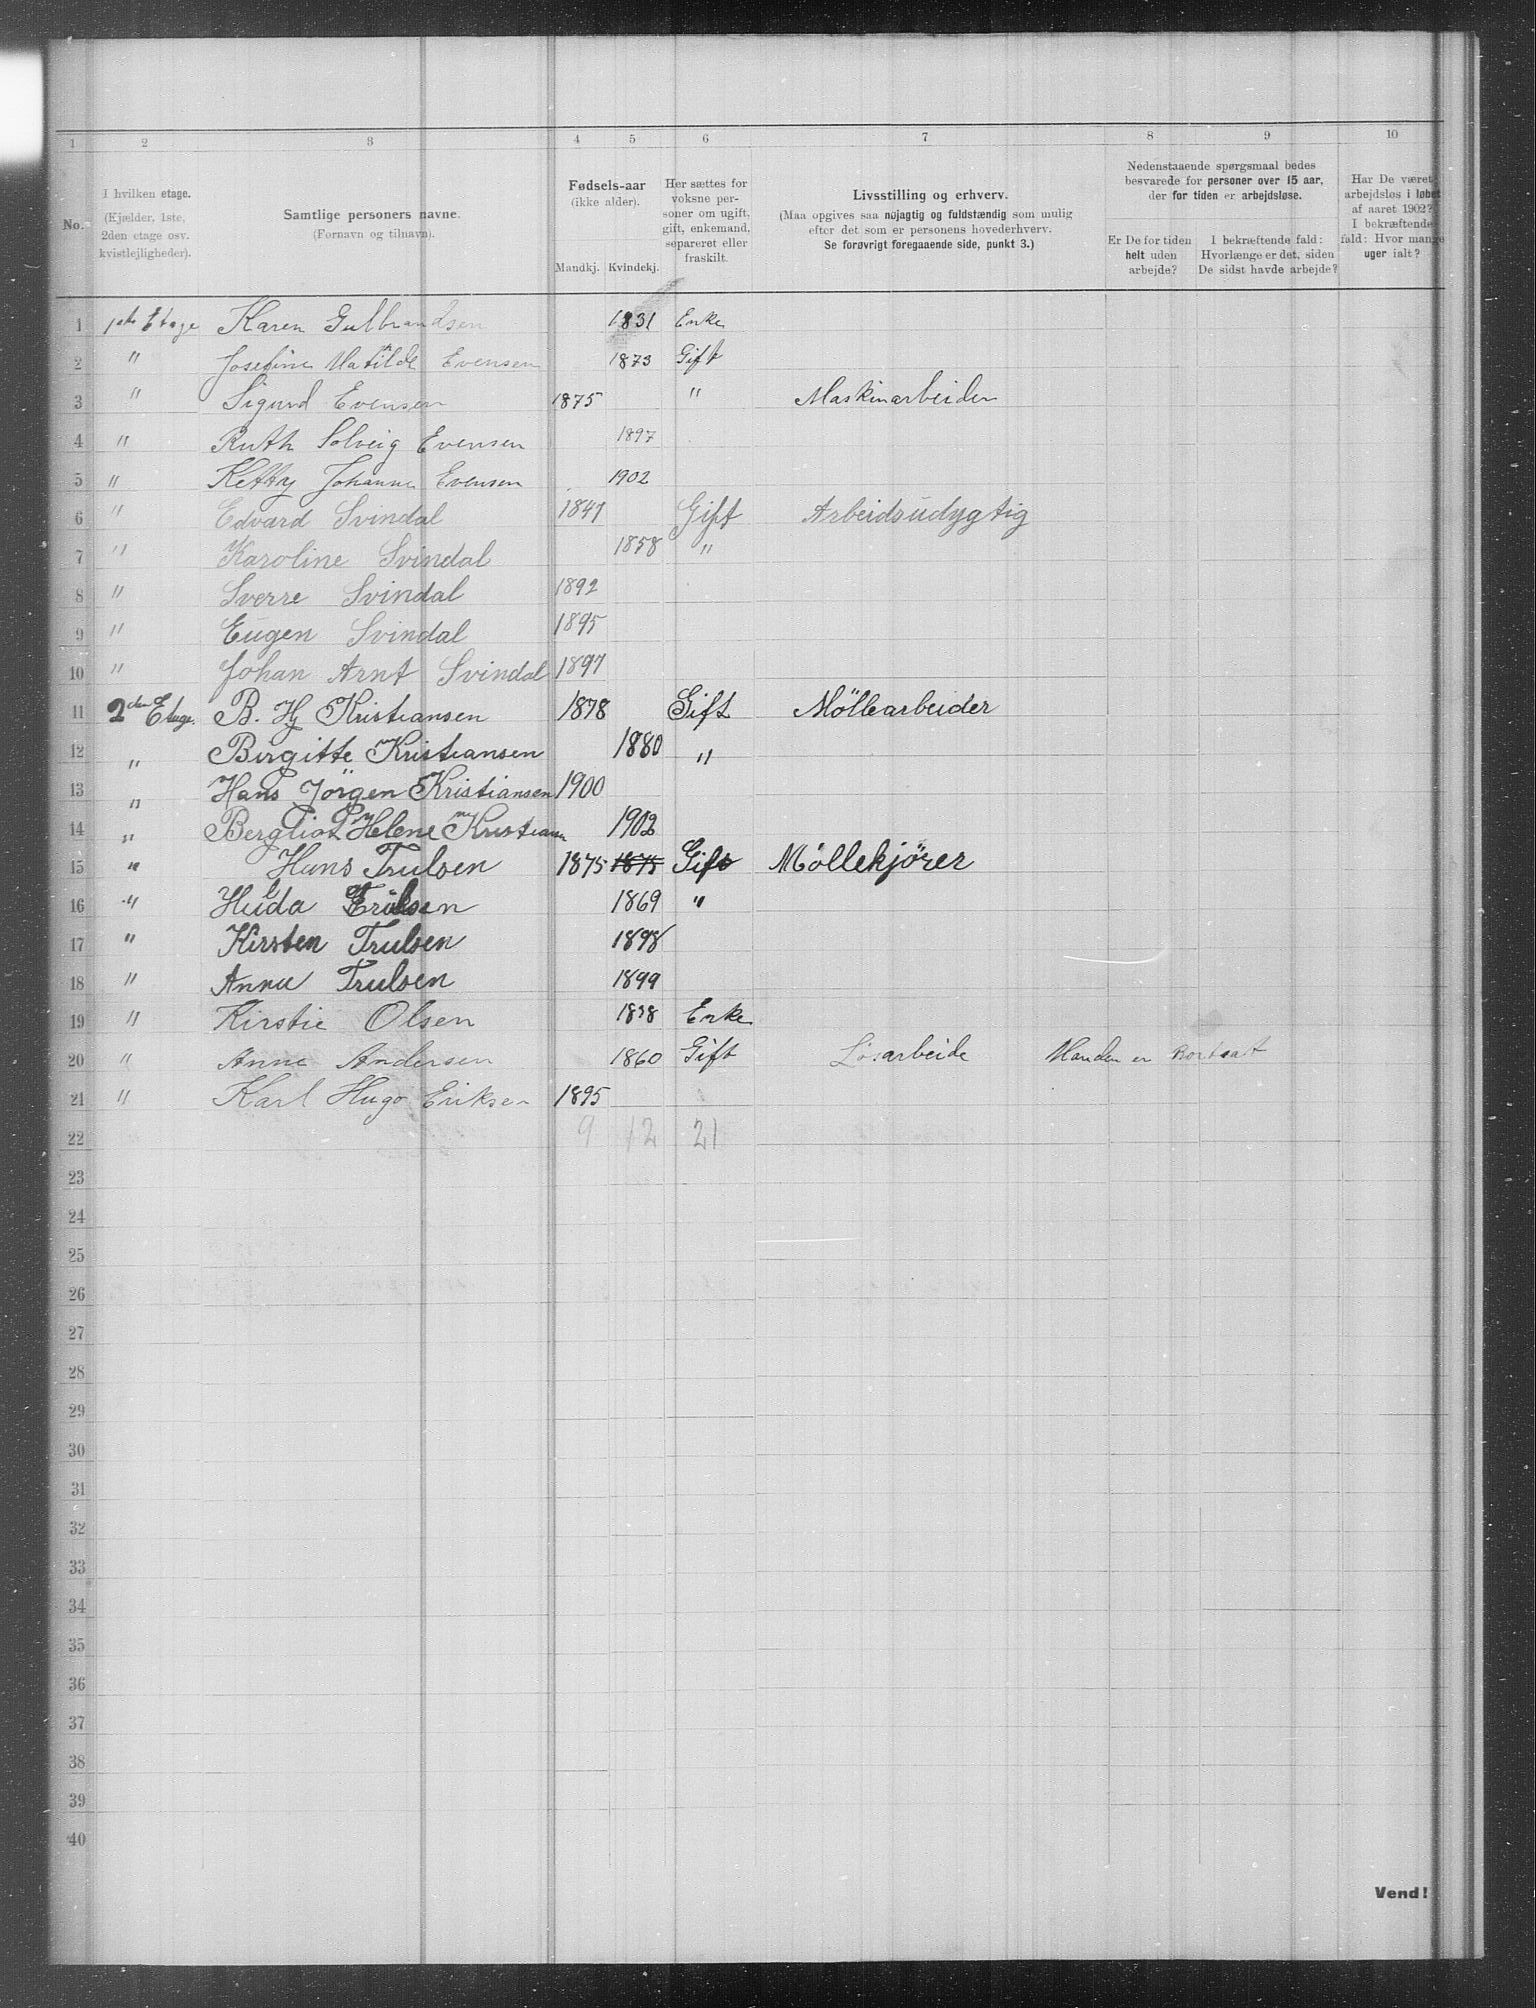 1 2 3 4 5 6 7 8 9 10
No.
I hvilken etage.
(Kjælder, 1ste, 2den etage osv. kvistlejligheder).
Samtlige personers navne.
(Fornavn og tilnavn).
Fødsels-aar
(ikke alder).
Mandkj. Kvindekj.
Her sættes for voksne personer om ugift, gift, enkemand, separeret eller fraskilt.
Livsstilling og erhverv.
(Maa opgives saa nøjagtig og fuldstændig som mulig
efter det som er personens hovederhverv.
Se forøvrigt foregaaende side, punkt 3.)
Nedenstaaende spørgsmaal bedes
besvarede for personer over 15 aar,
der for tiden er arbejdsløse.
Er De for tiden helt uden arbejde?
I bekræftende fald: Hvorlænge er det, siden De sidst havde arbejde?
Har De været arbejdsløs i løbet af aaret 1902? I bekræftende fald: Hvor mange uger ialt?
1 1ste Etage Karen Gulbrandsen 1831 Enke
2 " Josefine Matilde Evensen 1873 Gift
3 " Sigurd Evensen 1875 " Maskinarbeider
4 " Ruth Solveig Evensen 1897
5 " Ketty Johanne Evensen 1902
6 " Edvard Svindal 1847 Gift Arbeidsudygtig
7 " Karoline Svindal 1858 "
8 " Sverre Svindal 1892
9 " Eugen Svindal 1895
10 " Johan Arnt Svindal 1897
11 2den Etage. B. Hj Kristiansen 1878 Gift Möllearbeider
12 " Birgitte Kristiansen 1880 "
13 " Hans Jörgen Kristiansen 1900
14 " Bergliot Helene Kristiansen 1902
15 " Hans Trulsen 1875 1875 Gift Möllekjörer
16 " Hulda 1869 "
17 " Kirsten Trulsen 1898
18 " Anna Trulsen 1899
19 " Kirstie Olsen 1838 Enke
20 " Anna Andersen 1860 Gift Løsarbeide Manden er Bortsat
21 " Karl Hugo Eriksen 1895
22 9 12 21
23
24
25
26
27
28
29
30
31
32
33
34
35
36
37
38
39
40
Vend!